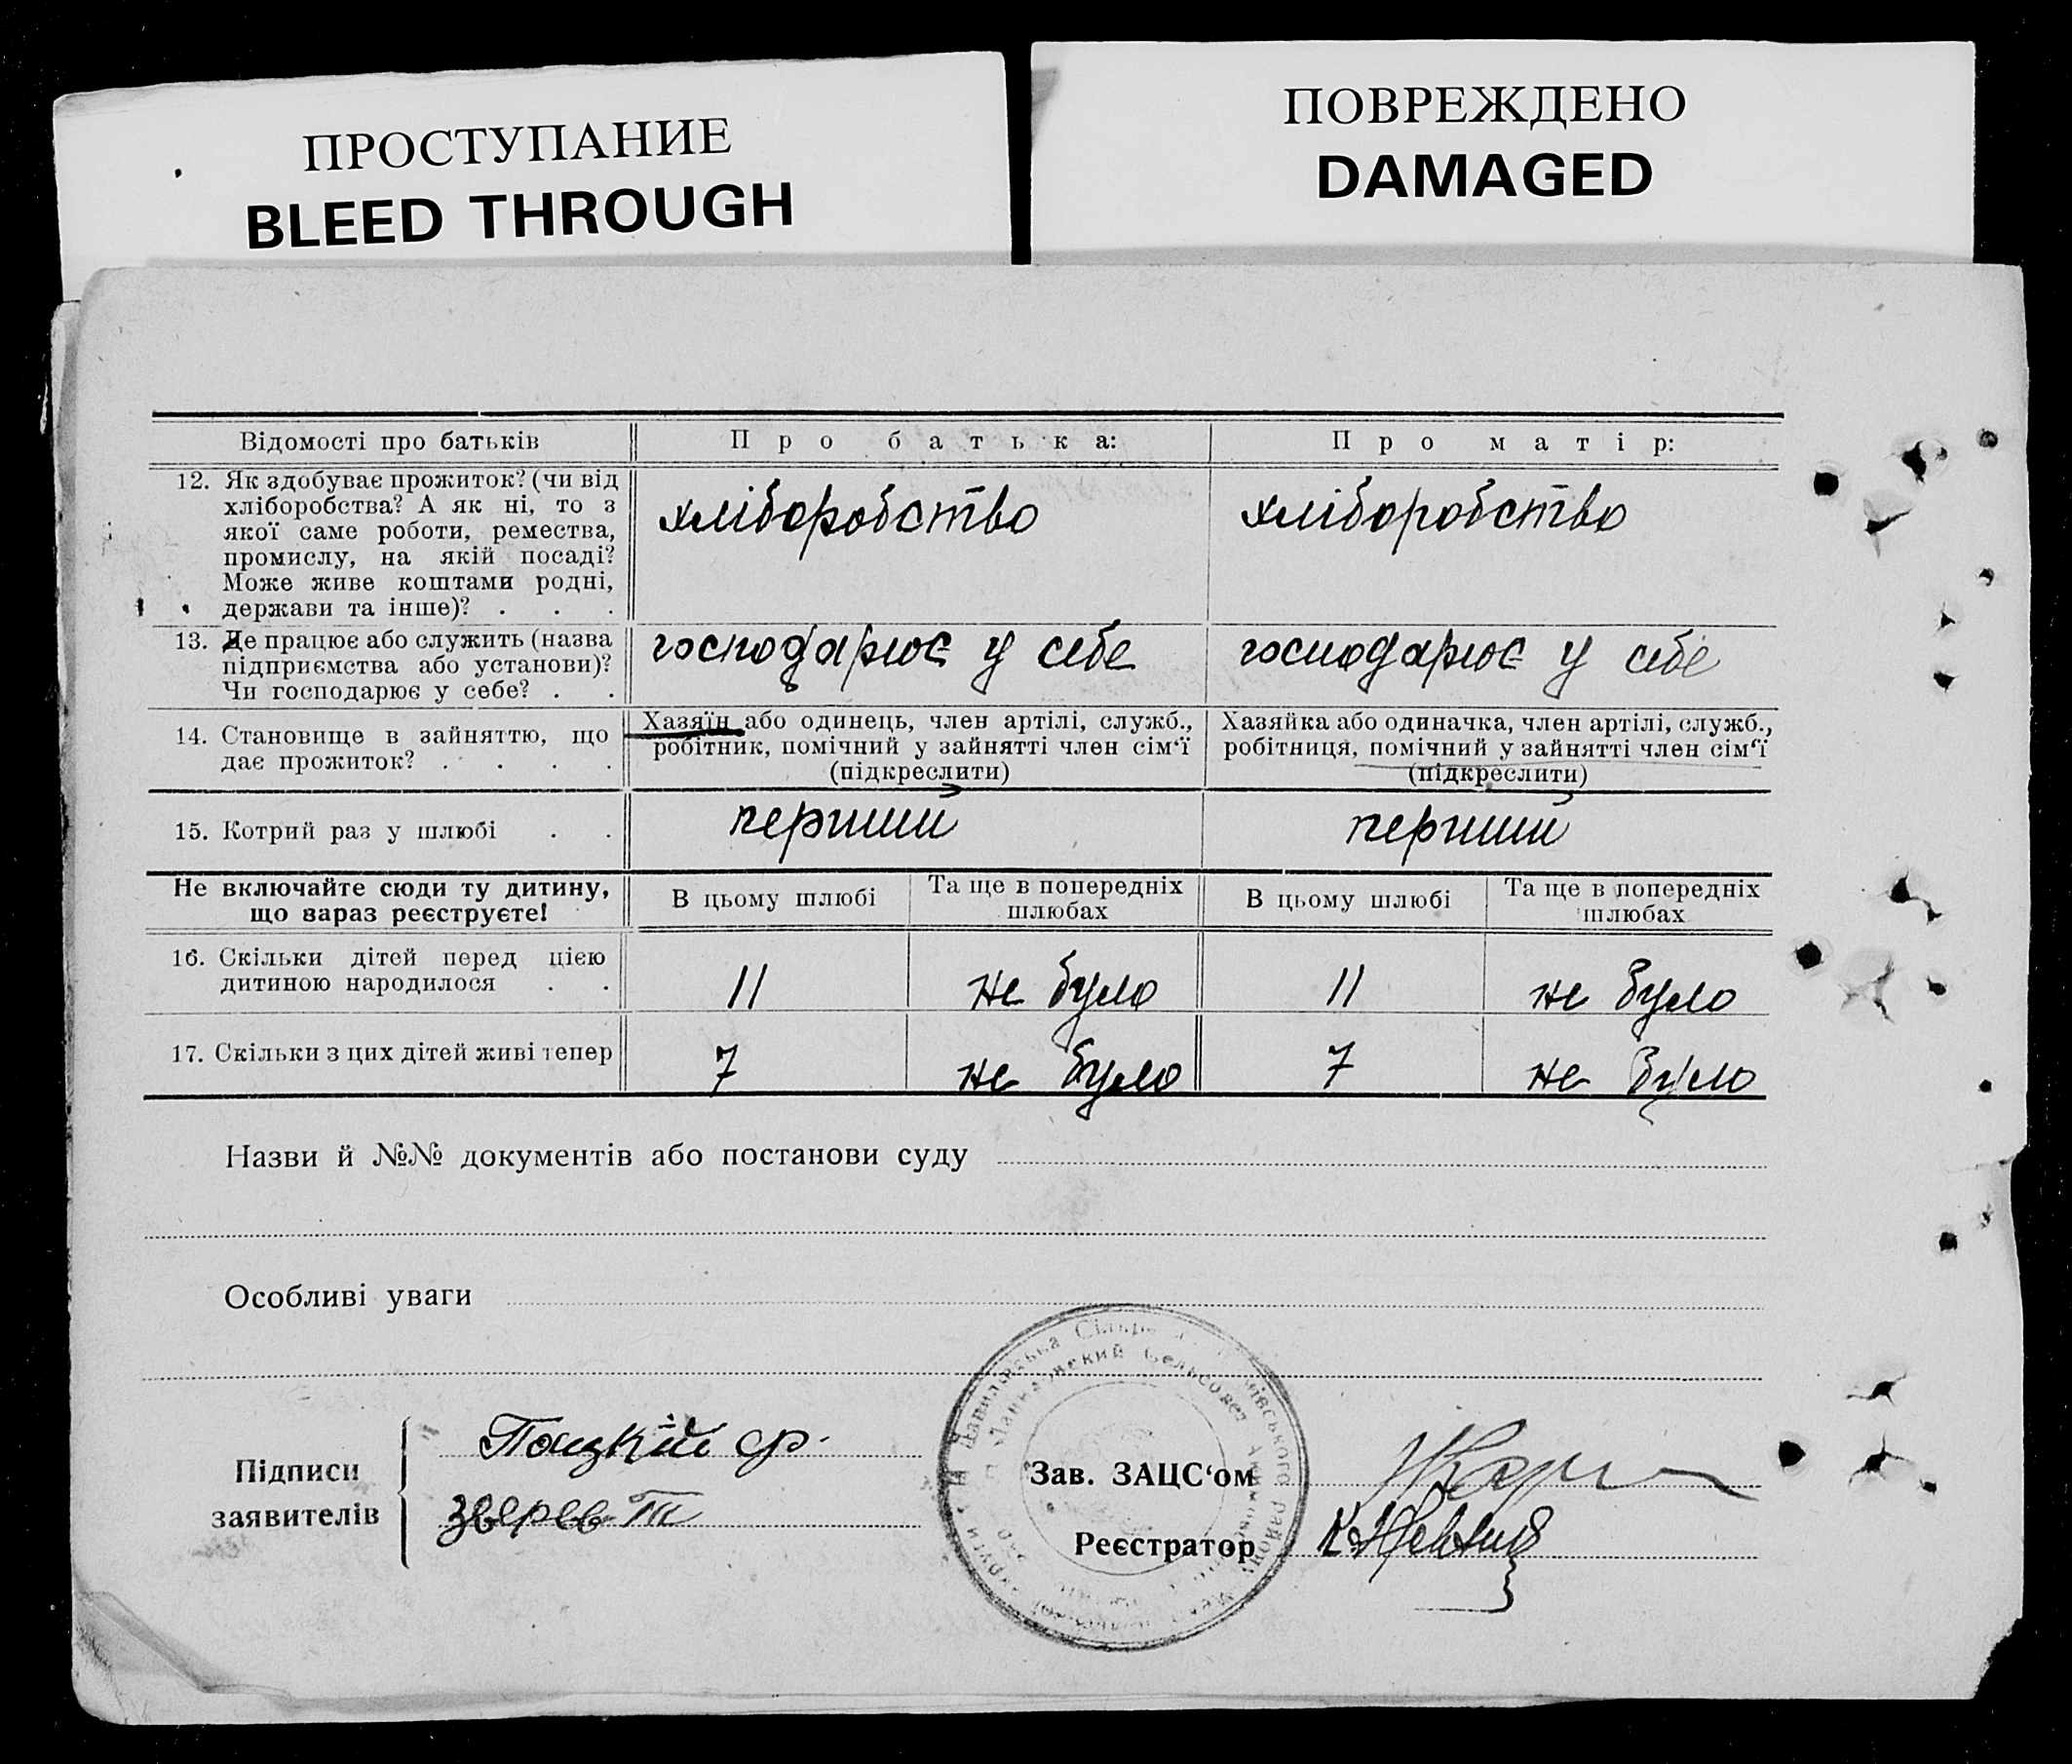 ПРОСТУПАНИЕ
BLEED THROUGH
ПОВРЕЖДЕНО
DAMAGED
Відомості про батьків
Про батька:
Про матір:
12. Як здобуває прожиток? (чи від
хліборобства? А як ні, то з
якої саме роботи, ремества,
промислу, на якій посаді?
Може живе коштами родні,
держави та інше)? . . .
хліборобство
хліборобство
13. Де працює або служить (назва
підприємства або установи)?
Чи господарює у себе? . .
господарює у себе
господарює у себе
14. Становище в зайняттю, що
дає прожиток? . . . .
Хазяїн або одинець, член артілі, служб.,
робітник, помічний у зайнятті член сім‘ї
(підкреслити)
Хазяйка або одиначка, член артілі, служб.,
робітниця, помічний у зайнятті член сім‘ї
(підкреслити)
15. Котрий раз у шлюбі . .
перший
перший
Не включайте сюди ту дитину,
що зараз реєструєте!
В цьому шлюбі
Та ще в попередніх
шлюбах
В цьому шлюбі
Та ще в попередніх
шлюбах
16. Скільки дітей перед цією
дитиною народилося . .
11
не було
11
не було
17. Скільки з цих дітей живі тепер
7
не було
7
не було
Назви й №№ документів або постанови суду
Особливі уваги
Підписи
заявителів
ф.
зверев Т
Зав. ЗАЦС‘ом
Реєстратор